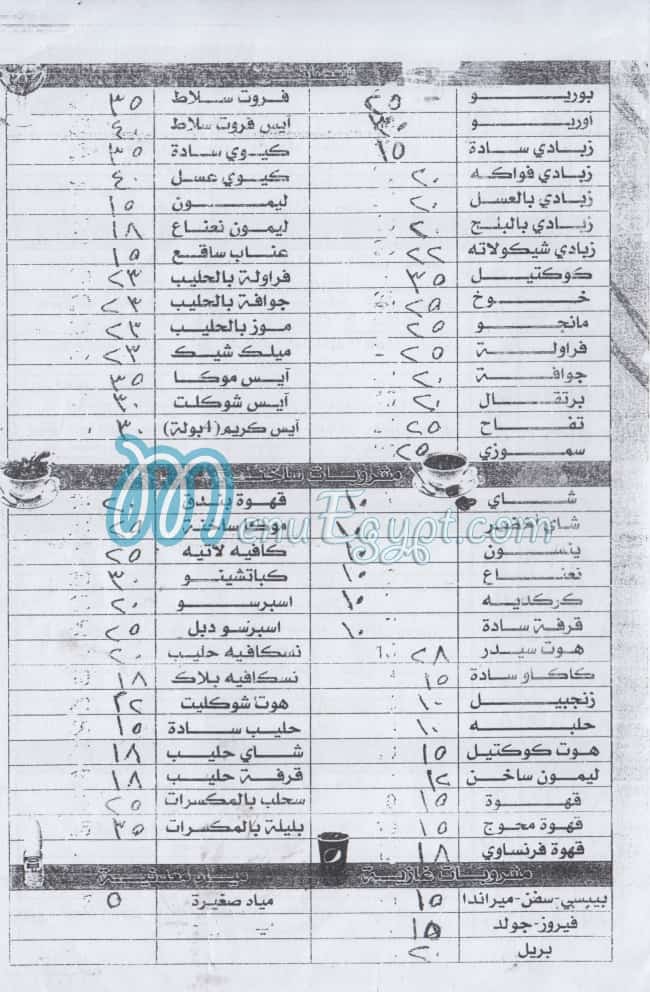 بوريو ٢٥ فروت سلاط ٣٥
أوريو ٣٠ آيس فروت سلاط ٤٠
زبادي سادة ١٥ كيوي سادة ٣٥
زبادي فواكه ٢٠ كيوي عسل ٤٠
زبادي بالعسل ٢٠ ليمون ١٥
زبادي بالبنج ٢٠ ليمون نعناع ١٨
زبادي شيكولاته ٢٢ عناب ساقع ١٥
كوكتيل ٣٥ فراولة بالحليب ٢٣
خوخ ٢٥ جوافة بالحليب ٢٣
مانجو ٢٥ موز بالحليب ٢٣
فراولة ٢٥ ميلك شيك ٢٣
جوافة ٢٠ آيس موكا ٣٥
برتقال ٢٠ آيس شوكلت ٣٠
تفاح ٢٥ آيس كريم (4بولة) ٣٠
سموزي ٢٥
مشروبات ساخنة
شاي ١٠ قهوة بندق
شاي أخضر ١٠ موكا ساخنة ٢٥
ينسون ١٥ كافيه لاتيه ٢٥
نعناع ١٠ كباتشينو ٣٠
كركديه ١٠ اسبرسو ٢٠
قرفة سادة ١٠ اسبرسو دبل ٢٥
هوت سيدر ٢٨ نسكافيه حليب ٢٠
كاكاو سادة ١٥ نسكافيه بلاك ١٨
زنجبيل ١٠ هوت شوكليت ٢٢
حلبه ١٠ حليب سادة ١٥
هوت كوكتيل ١٥ شاي حليب ١٨
ليمون ساخن ١٢ قرفة حليب ١٨
قهوة ١٥ سحلب بالمكسرات ٢٥
قهوة محوج ١٥ بليلة بالمكسرات ٣٥
قهوة فرنساوي ١٨
مشروبات غازية مياه معدنية
بيبسي-سفن-ميراندا ١٥ مياه صغيرة ٥
فيروز-جولد ١٥
بريل ٢٠
MenuEgypt.com